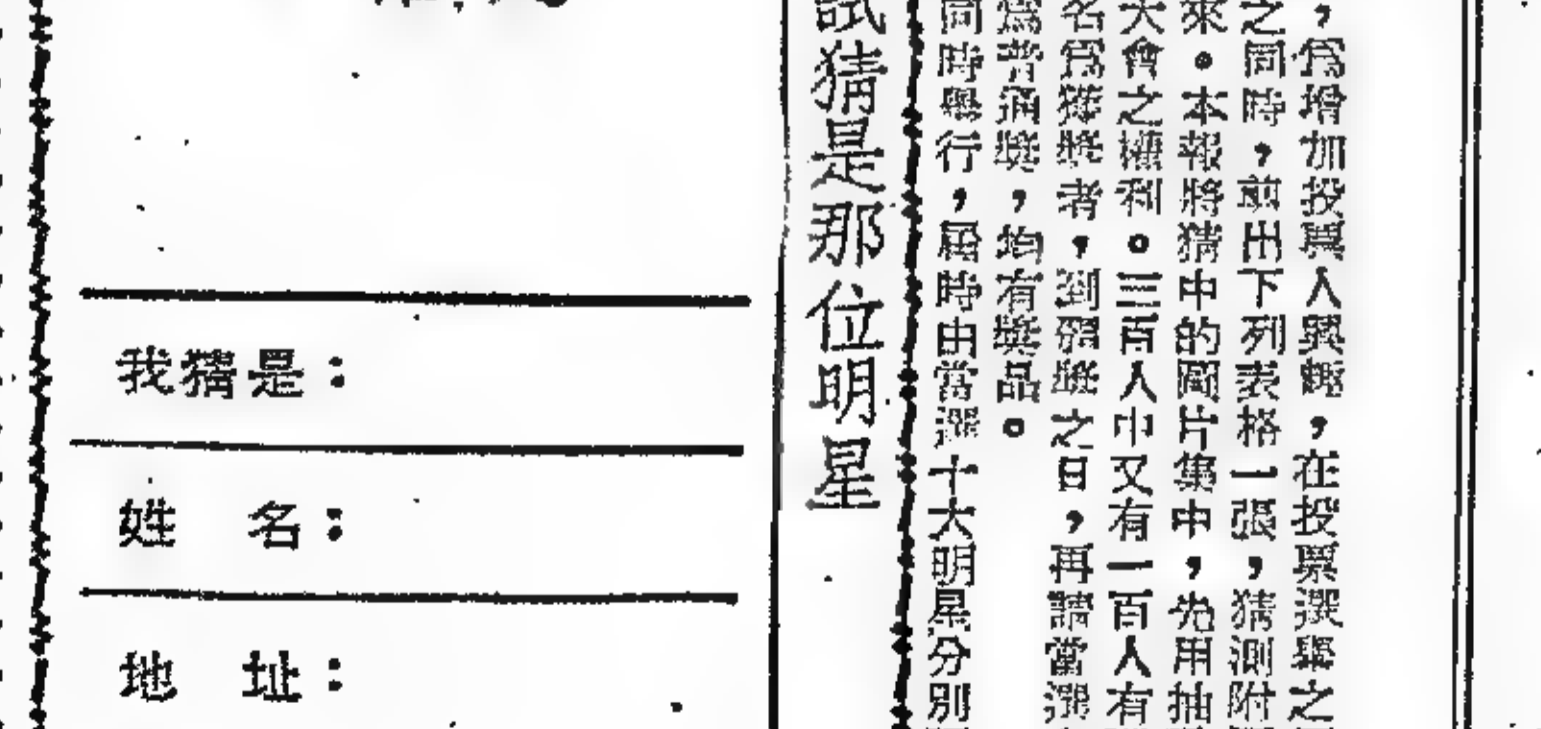 ，爲增加投票人興趣，在投票選舉之
之同時，剪出下列表格一張，猜測附
來。本報將猜中的圖片集中，先用抽
大會之權利。三百人中又有一百人有
名爲獲獎者，到頒獎之日，再請當選
爲普通獎，均有獎品。
同時舉行，屆時由當選十大明星分別
試猜是那位明星
我猜是：
姓　名：
地　址：